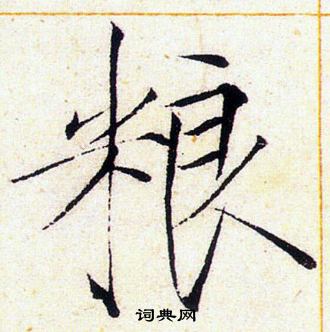 粮
词典网